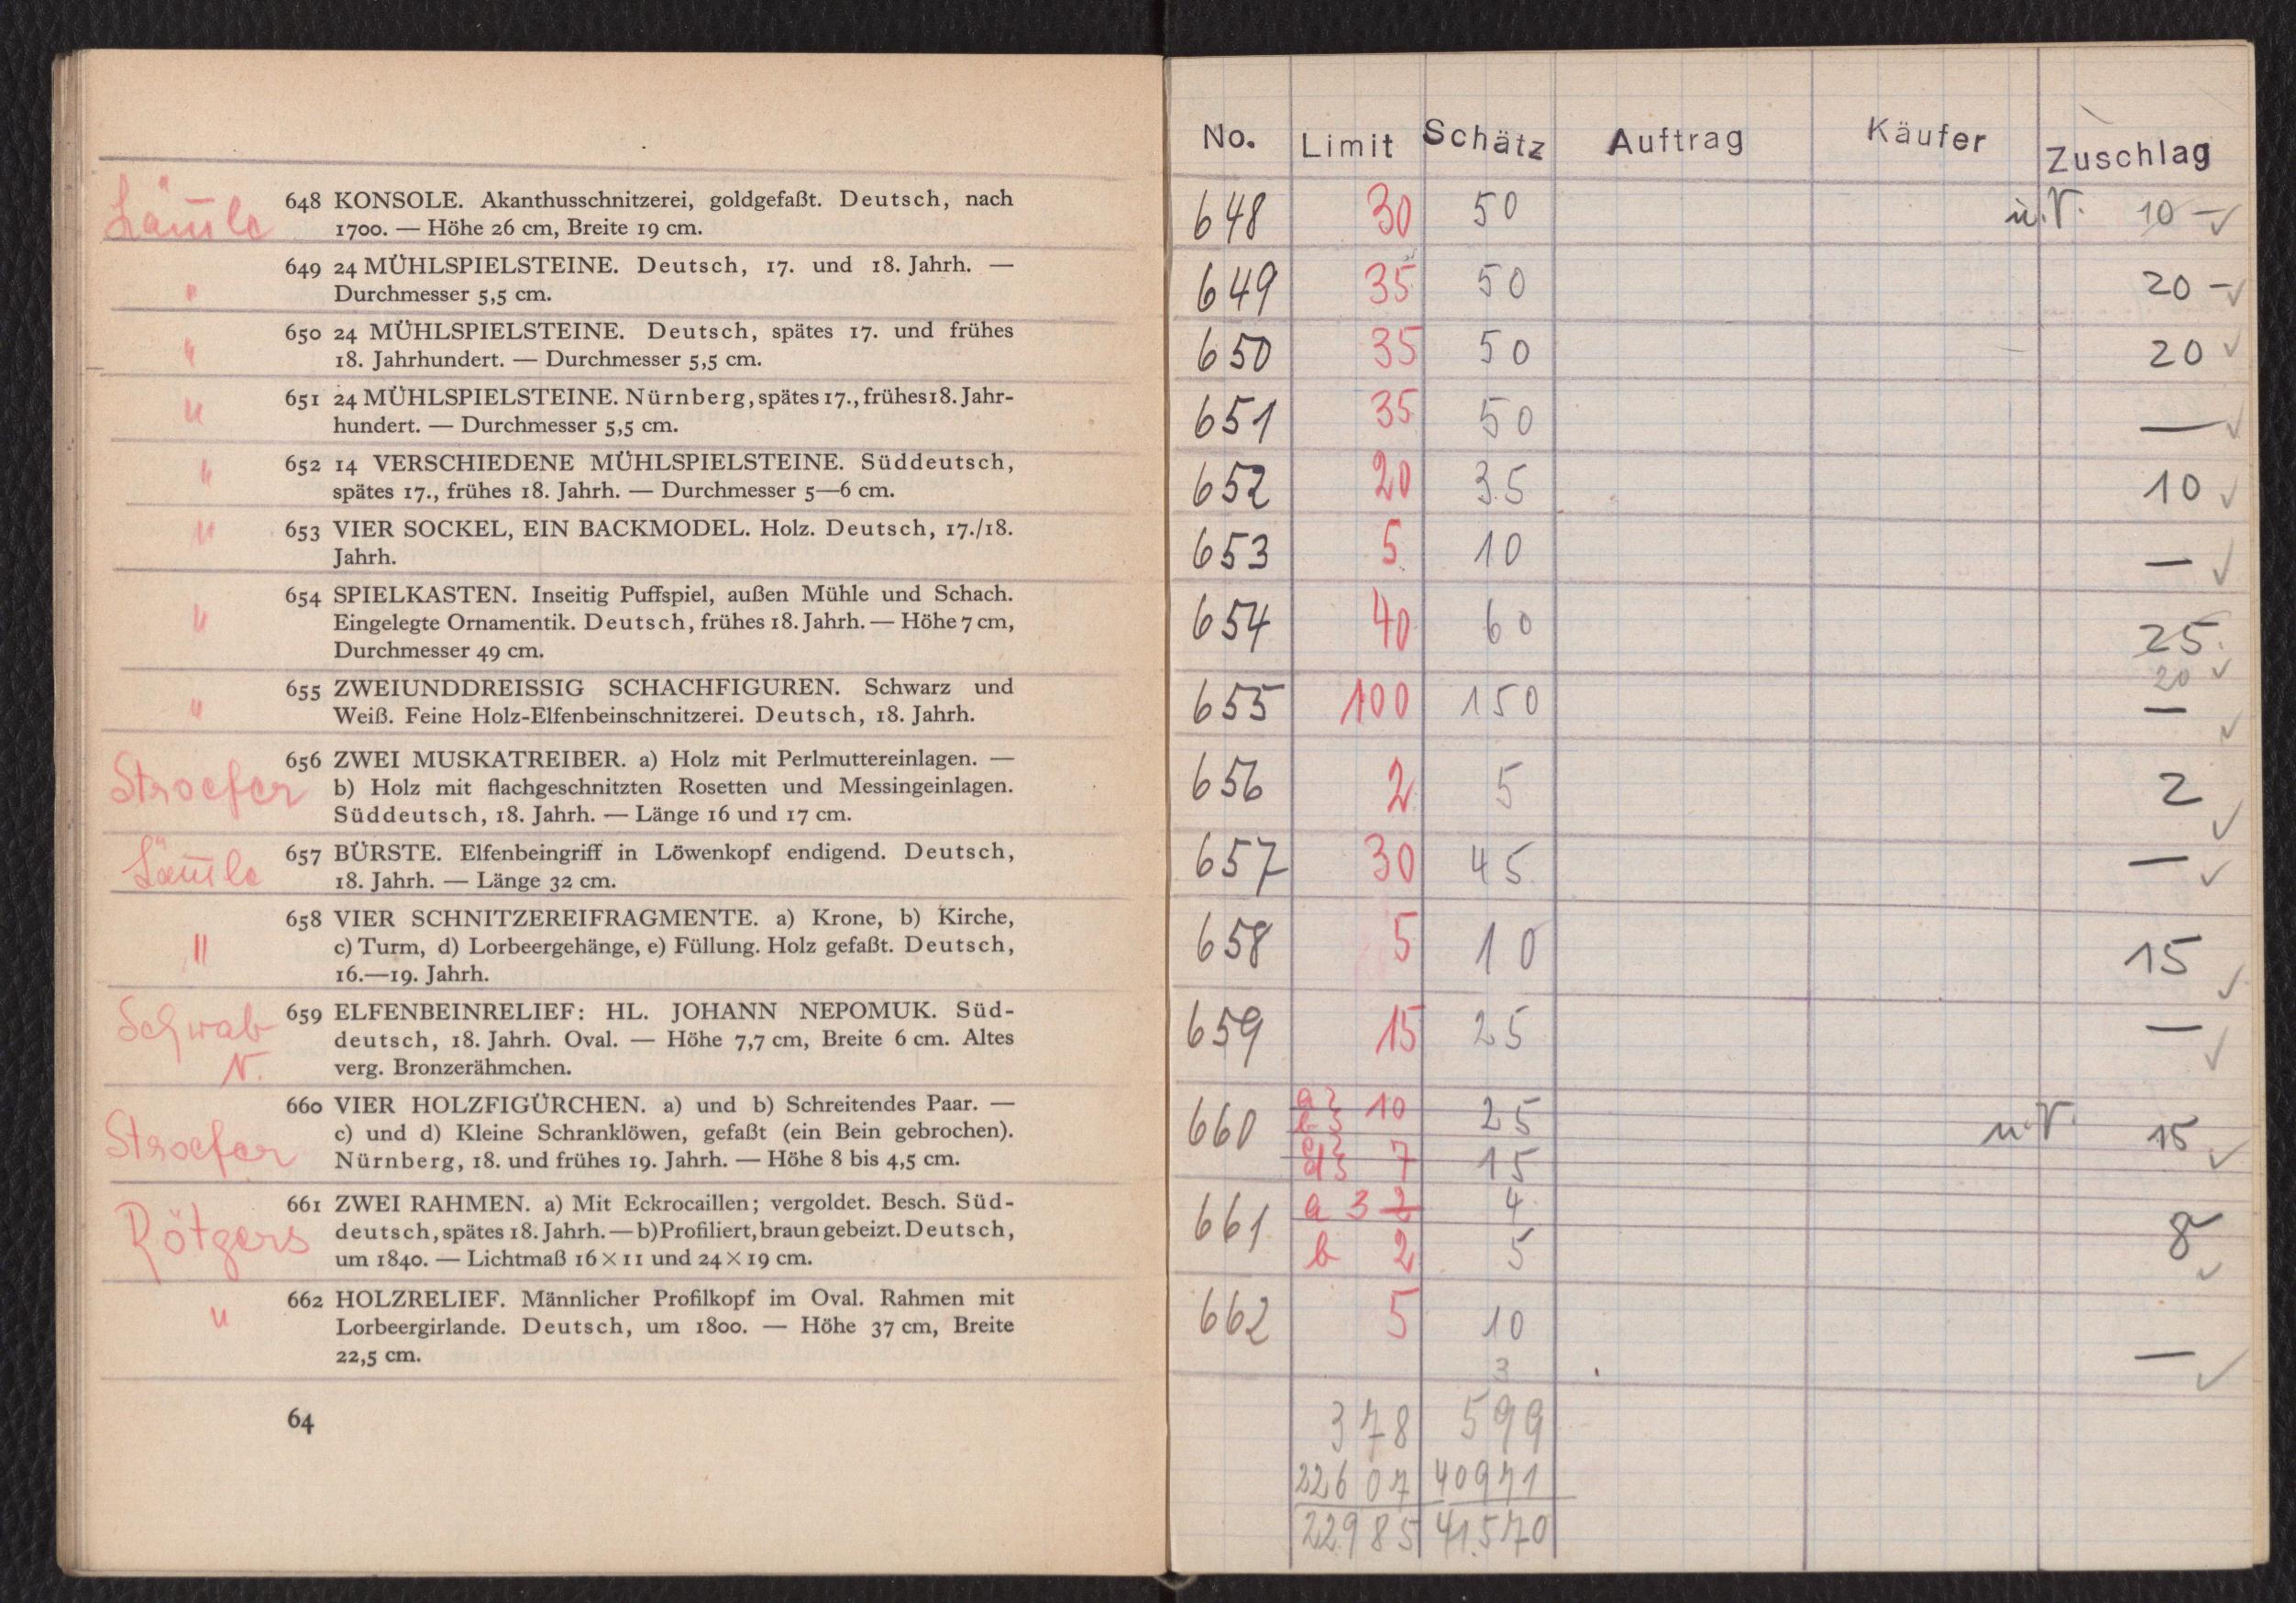 Lämle
648 KONSOLE. Akanthusschnitzerei, goldgefaßt. Deutsch, nach
1700. — Höhe 26 cm, Breite 19 cm.
649 24 MÜHLSPIELSTEINE. Deutsch, 17. und 18. Jahrh. —
" Durchmesser 5,5 cm.
650 24 MÜHLSPIELSTEINE. Deutsch, spätes 17. und frühes
" 18. Jahrhundert. — Durchmesser 5,5 cm.
651 24 MÜHLSPIELSTEINE. Nürnberg, spätes 17., frühes 18. Jahr-
" hundert. — Durchmesser 5,5 cm.
652 14 VERSCHIEDENE MÜHLSPIELSTEINE. Süddeutsch,
" spätes 17., frühes 18. Jahrh. — Durchmesser 5—6 cm.
" 653 VIER SOCKEL, EIN BACKMODEL. Holz. Deutsch, 17./18.
Jahrh.
654 SPIELKASTEN. Inseitig Puffspiel, außen Mühle und Schach.
" Eingelegte Ornamentik. Deutsch, frühes 18. Jahrh. — Höhe 7 cm,
Durchmesser 49 cm.
655 ZWEIUNDDREISSIG SCHACHFIGUREN. Schwarz und
" Weiß. Feine Holz-Elfenbeinschnitzerei. Deutsch, 18. Jahrh.
Stroefer
656 ZWEI MUSKATREIBER. a) Holz mit Perlmuttereinlagen. —
b) Holz mit flachgeschnitzten Rosetten und Messingeinlagen.
Süddeutsch, 18. Jahrh. — Länge 16 und 17 cm.
Lämle
657 BÜRSTE. Elfenbeingriff in Löwenkopf endigend. Deutsch,
18. Jahrh. — Länge 32 cm.
658 VIER SCHNITZEREIFRAGMENTE. a) Krone, b) Kirche,
" c) Turm, d) Lorbeergehänge, e) Füllung. Holz gefaßt. Deutsch,
16.—19. Jahrh.
Schwab
N.
659 ELFENBEINRELIEF: HL. JOHANN NEPOMUK. Süd-
deutsch, 18. Jahrh. Oval. — Höhe 7,7 cm, Breite 6 cm. Altes
verg. Bronzerähmchen.
Stroefer
660 VIER HOLZFIGÜRCHEN. a) und b) Schreitendes Paar. —
c) und d) Kleine Schranklöwen, gefaßt (ein Bein gebrochen).
Nürnberg, 18. und frühes 19. Jahrh. — Höhe 8 bis 4,5 cm.
Rötgers
661 ZWEI RAHMEN. a) Mit Eckrocaillen; vergoldet. Besch. Süd-
deutsch, spätes 18. Jahrh. — b) Profiliert, braun gebeizt. Deutsch,
um 1840. — Lichtmaß 16 × 11 und 24 × 19 cm.
662 HOLZRELIEF. Männlicher Profilkopf im Oval. Rahmen mit
" Lorbeergirlande. Deutsch, um 1800. — Höhe 37 cm, Breite
22,5 cm.
64
No. Limit Schätz Auftrag Käufer Zuschlag
648 30 50 u.V. 10 —
649 35 50 20 —
650 35 50 20
651 35 50 —
652 20 35 10
653 5 10 —
654 40 60 25
20
655 100 150 —
656 2 5 2
657 30 45 —
658 5 10 15
659 15 25 —
660 a b 10 25 u.V. 15
c d 7 15
661 a 3 2 4 8
b 2 5
662 5 10 —
3
378 599
22607 40971
22985 41.570